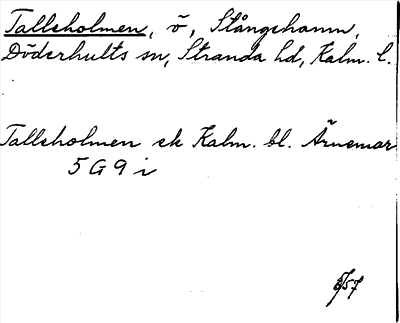 Tallsholmen, ö, Stångehamn,
Döderhults sn, Stranda hd, Kalm. l.
Tallsholmen ek Kalm. bl. Ärnemar
5 G 9 i